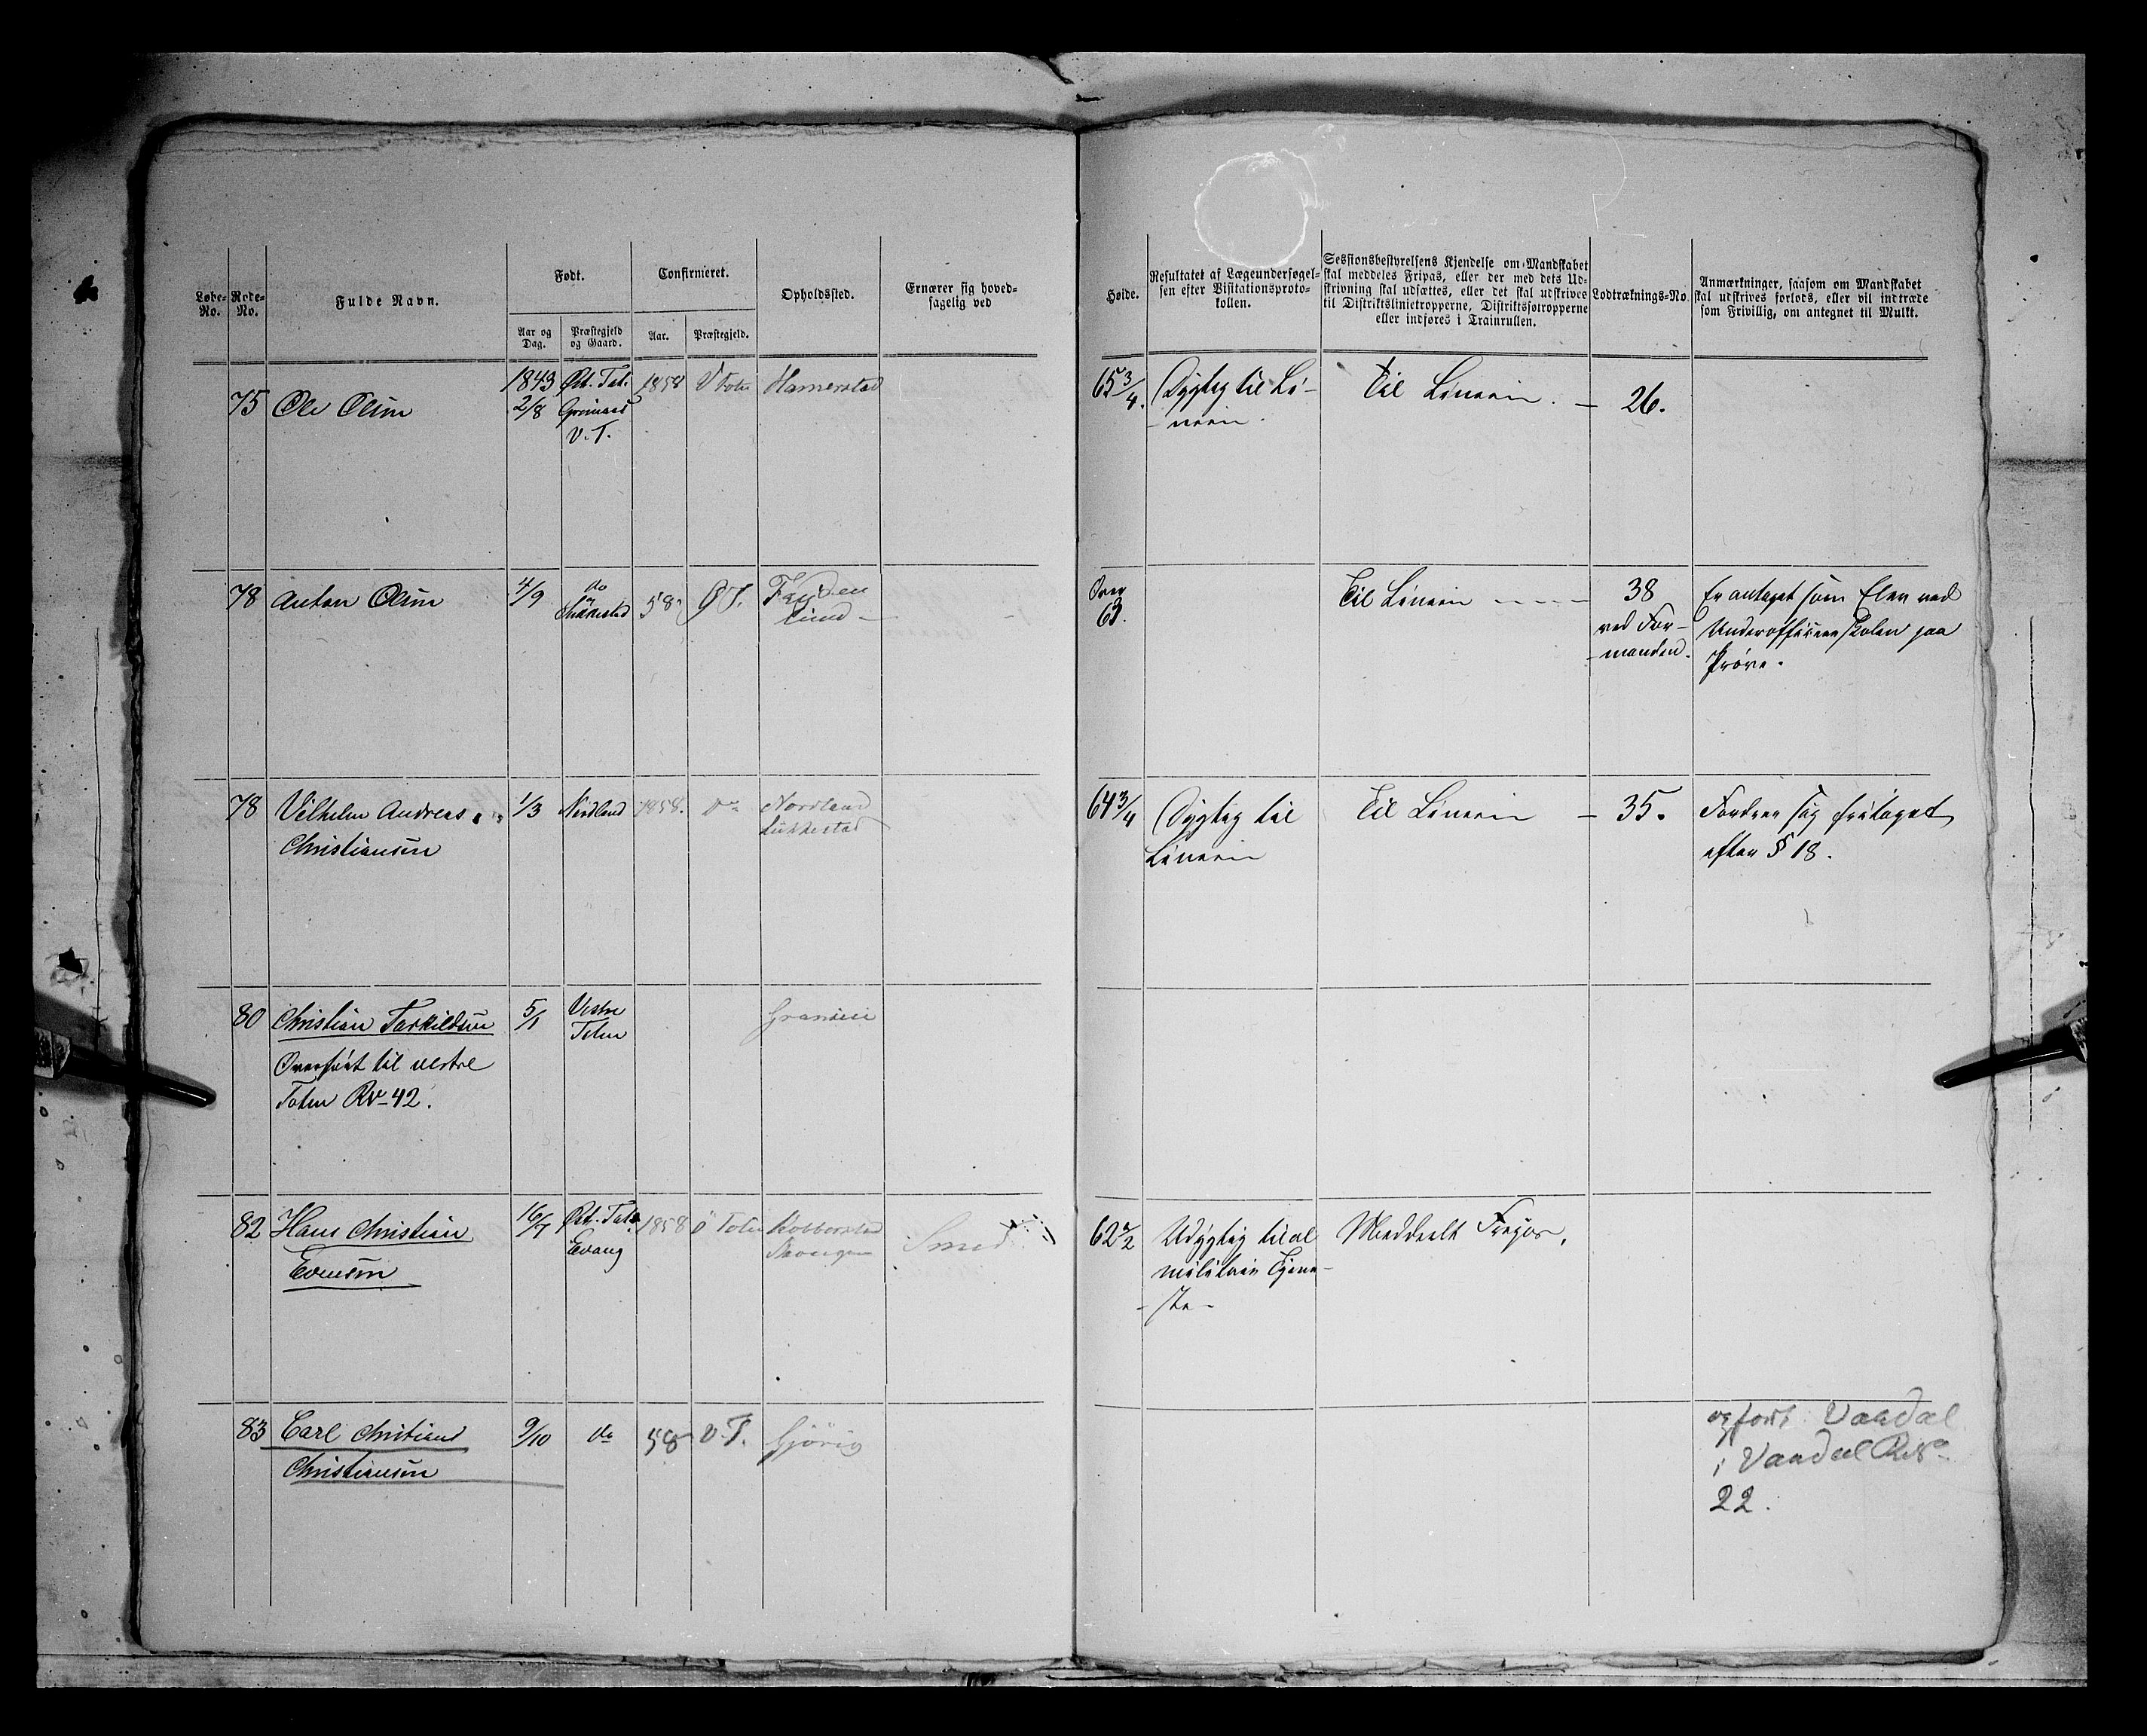 Løbe-No. Rode-No. Fulde Navn. Født. Confirmeret. Opholdssted. Ernærer sig hovedsagelig ved
Aar og Dag. Præstegjeld og Gaard. Aar. Præstegjeld.
Høide. Resultatet af Lægeundersøgelsen efter Visitationsprotokollen. Sessionsbestyrelsens Kjendelse om Mandskabet skal meddeles Fripas, eller der med dets Udskrivning skal udsættes, eller det skal udskrives til Distriktslinietropperne, Distriktsjøtropperne eller indføres i Trainrullen. Lodtræknings-No. Anmærkninger, saasom om Mandskabet skal udskrives forlods, eller vil indtræde som Frivillig, om antegnet til Mulkt.
75 Ole Olsen 1843 2/8 Øst. Tot. V. T. 1858 V Toten Hamerstad
65 3/4. Dygtig til Li-
nien. Til Linien. – 26.
78 Anton Olsen 4/9 do 58 Ø T. lund –
Over 63. Til Linien - - - - 38
ved For-
manden.
Er antaget som Elev ved
Underofficeerskolen paa
Prøve.
78 Vilhelm Andreas 1/3 Nordland 1858. do Nordland
Christiansen Lukkestad
64 3/4 Dygtig til
Linien Til Linien – 35. Fordrer sig fritaget
efter § 18.
80 Christian Torkildsen 5/1 Vestre
Toten
Overført til vestre
Toten Rv- 42.
82 Hans Christian 16/7 Øst. Tot. 1858 Ø Toten
Evensen Evang Smed
62 1/2 Udygtig til al
militair Tjene-
ste – Meddeelt Fripas.
83 Carl Christian 9/10 do 58 V. T. Gjövig
Christiansen
opført Vardal
i Vardal RNo
22.